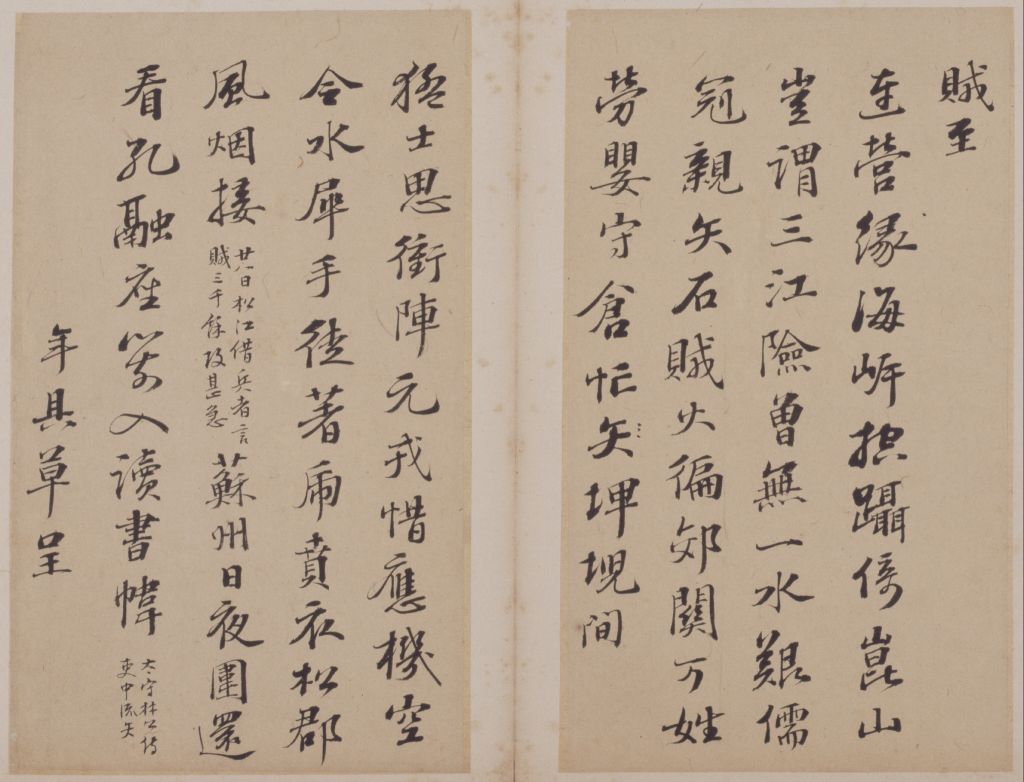 賊至
連營緣海岸躡倚崑山
豈謂三江險曾無一水艱儒
冠親矢石賊火徧郊關万姓
勞嬰守倉忙矢埤堄間
猛士思衝陣元戎惜應機空
令水犀手徒著虎賁衣松郡
風烟接廿八日松江借兵者言賊三千餘攻甚急蘇州日夜圍還
看孔融座箭入讀書幃太守林公侍吏中流矢
年具草呈